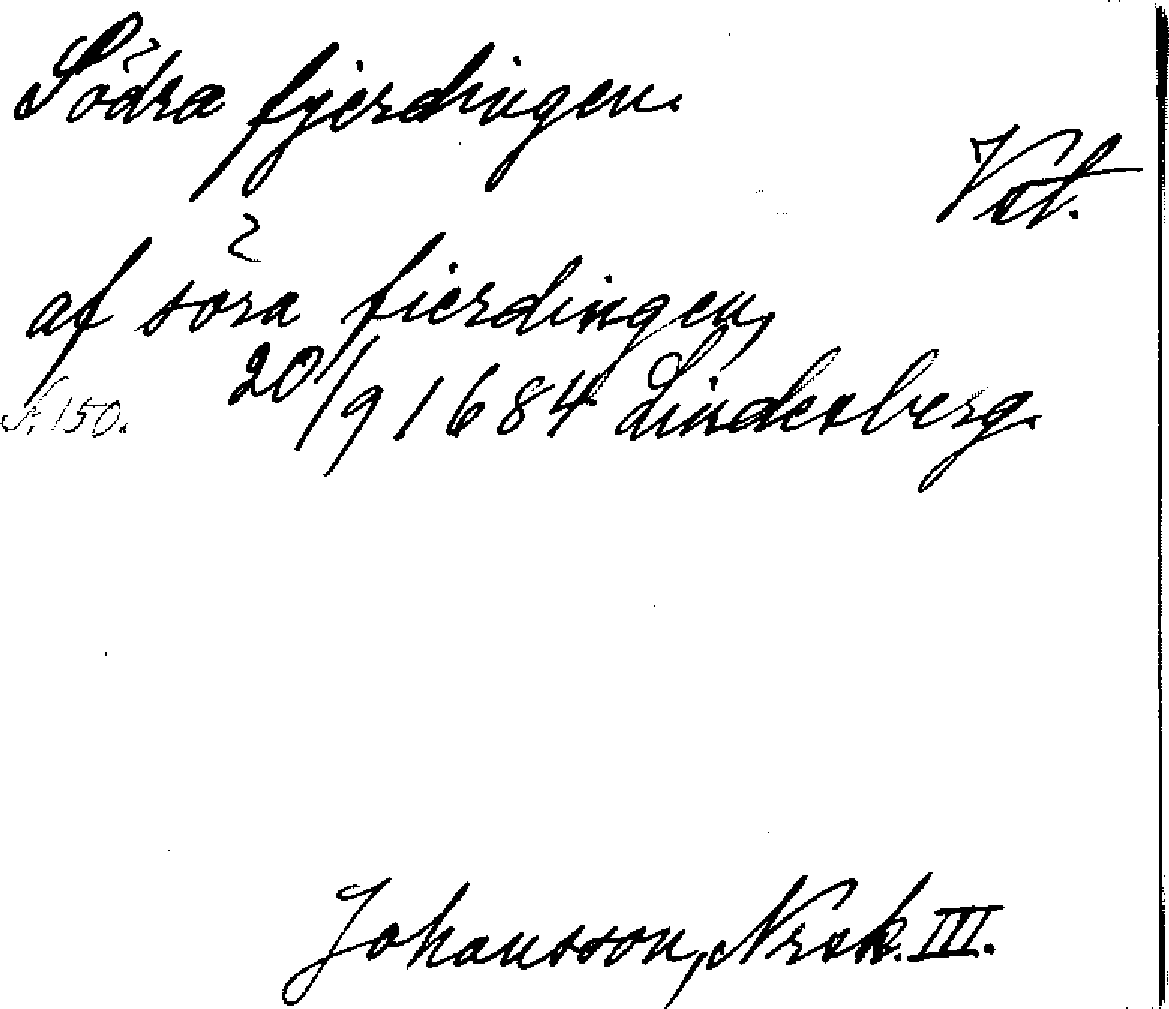 Södra fjerdingen.
Vst.
af söra fierdingen,
s. 150. 20/9 1684 Lindesberg.
Johansson, Nrsk. III.